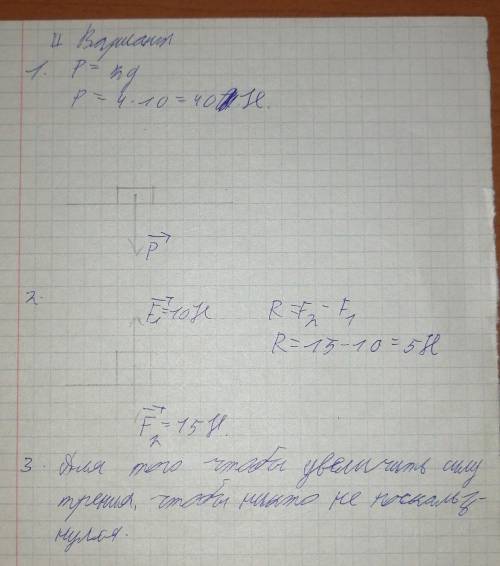 II Вариант
1. P = mg
P = 4·10 = 40 H.
P
2.
F₁=10H R=F₂-F₁
R=15-10=5H
F₂=15H.
3. Для того чтобы увеличить силу
трения, чтобы никто не поскольз-
нулся.